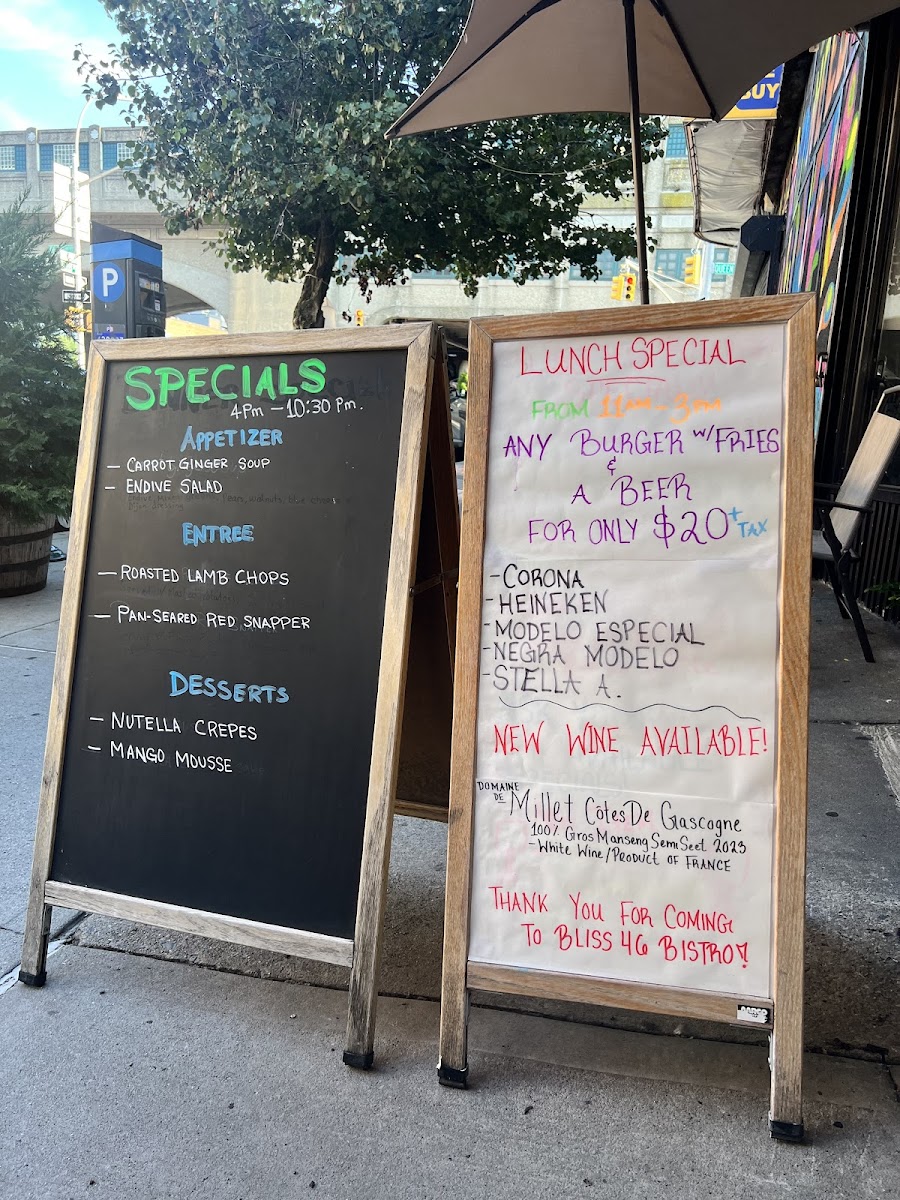 SPECIALS
4PM - 10:30 PM.
APPETIZER
- CARROT GINGER SOUP
- ENDIVE SALAD
ENTREE
- ROASTED LAMB CHOPS
- PAN-SEARED RED SNAPPER
DESSERTS
- NUTELLA CREPES
- MANGO MOUSSE
LUNCH SPECIAL
FROM 11AM - 3PM
ANY BURGER W/FRIES
&
A BEER
FOR ONLY $20 + TAX
- CORONA
- HEINEKEN
- MODELO ESPECIAL
- NEGRA MODELO
- STELLA A.
NEW WINE AVAILABLE!
DOMAINE
DE Millet Côtes De Gascogne
100% Gros Manseng Semi Seet 2023
- WHITE WINE/PRODUCT OF FRANCE
THANK YOU FOR COMING
TO BLISS 46 BISTRO!
P
BUY